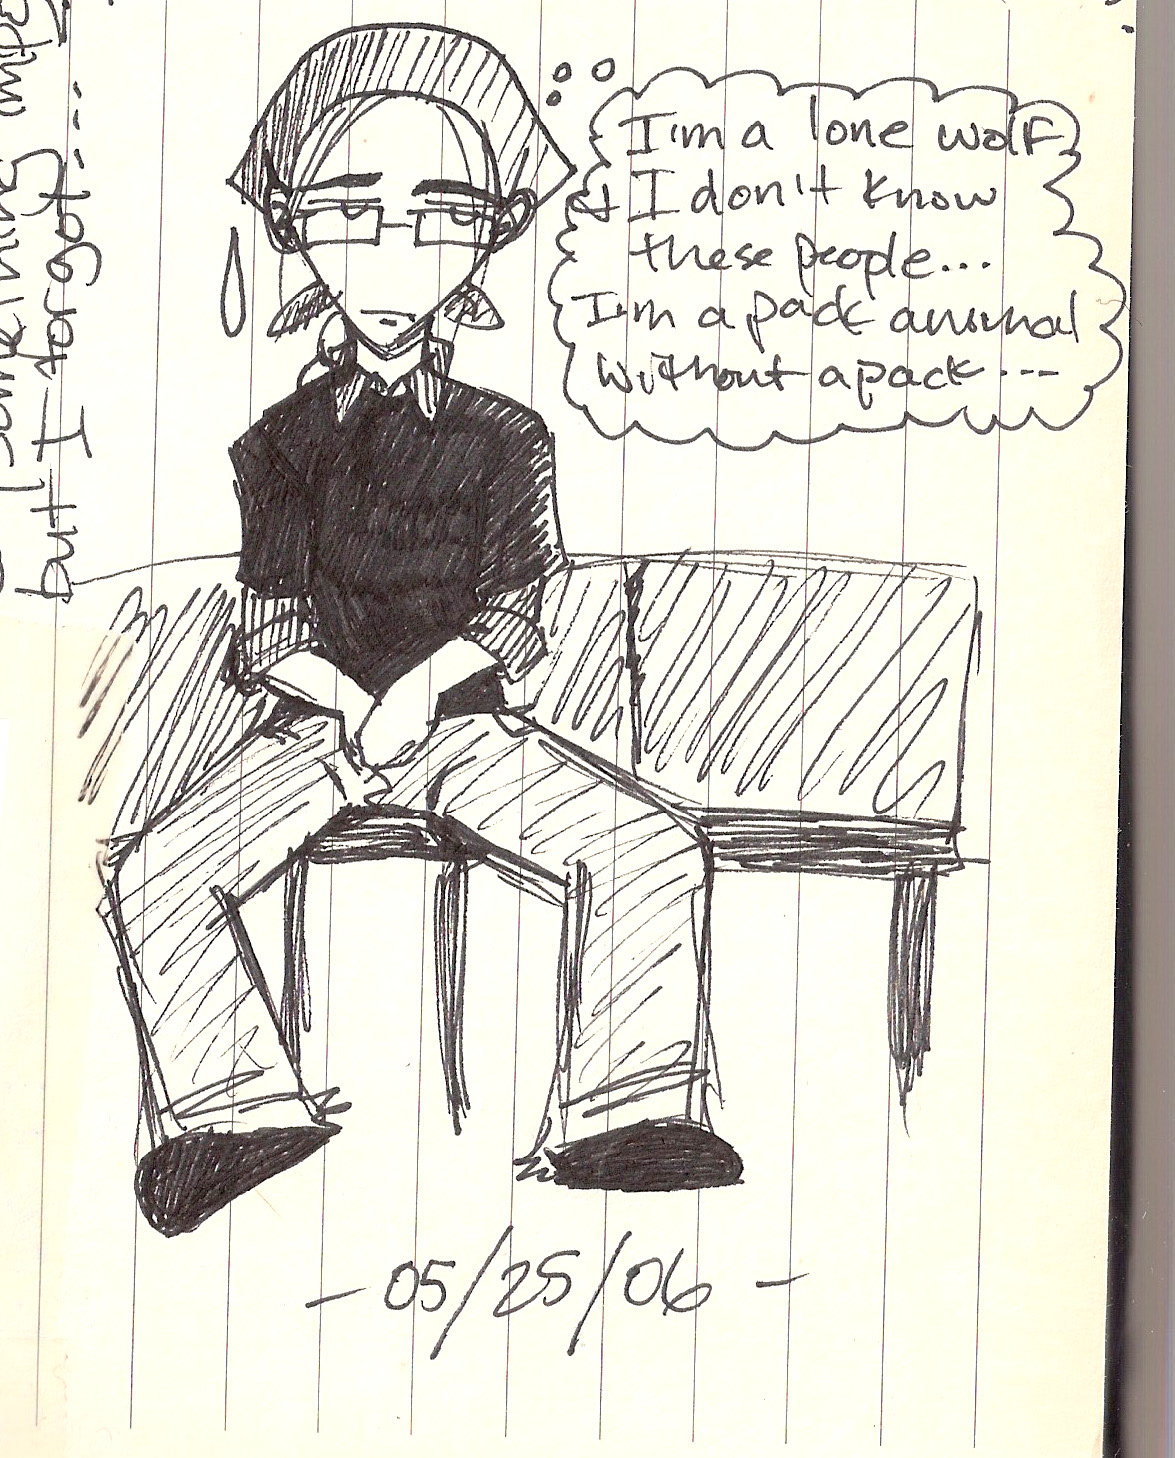 I'm a lone wolf
& I don't know
these people...
I'm a pack animal
without a pack...
something
but I forgot...
- 05/25/06 -